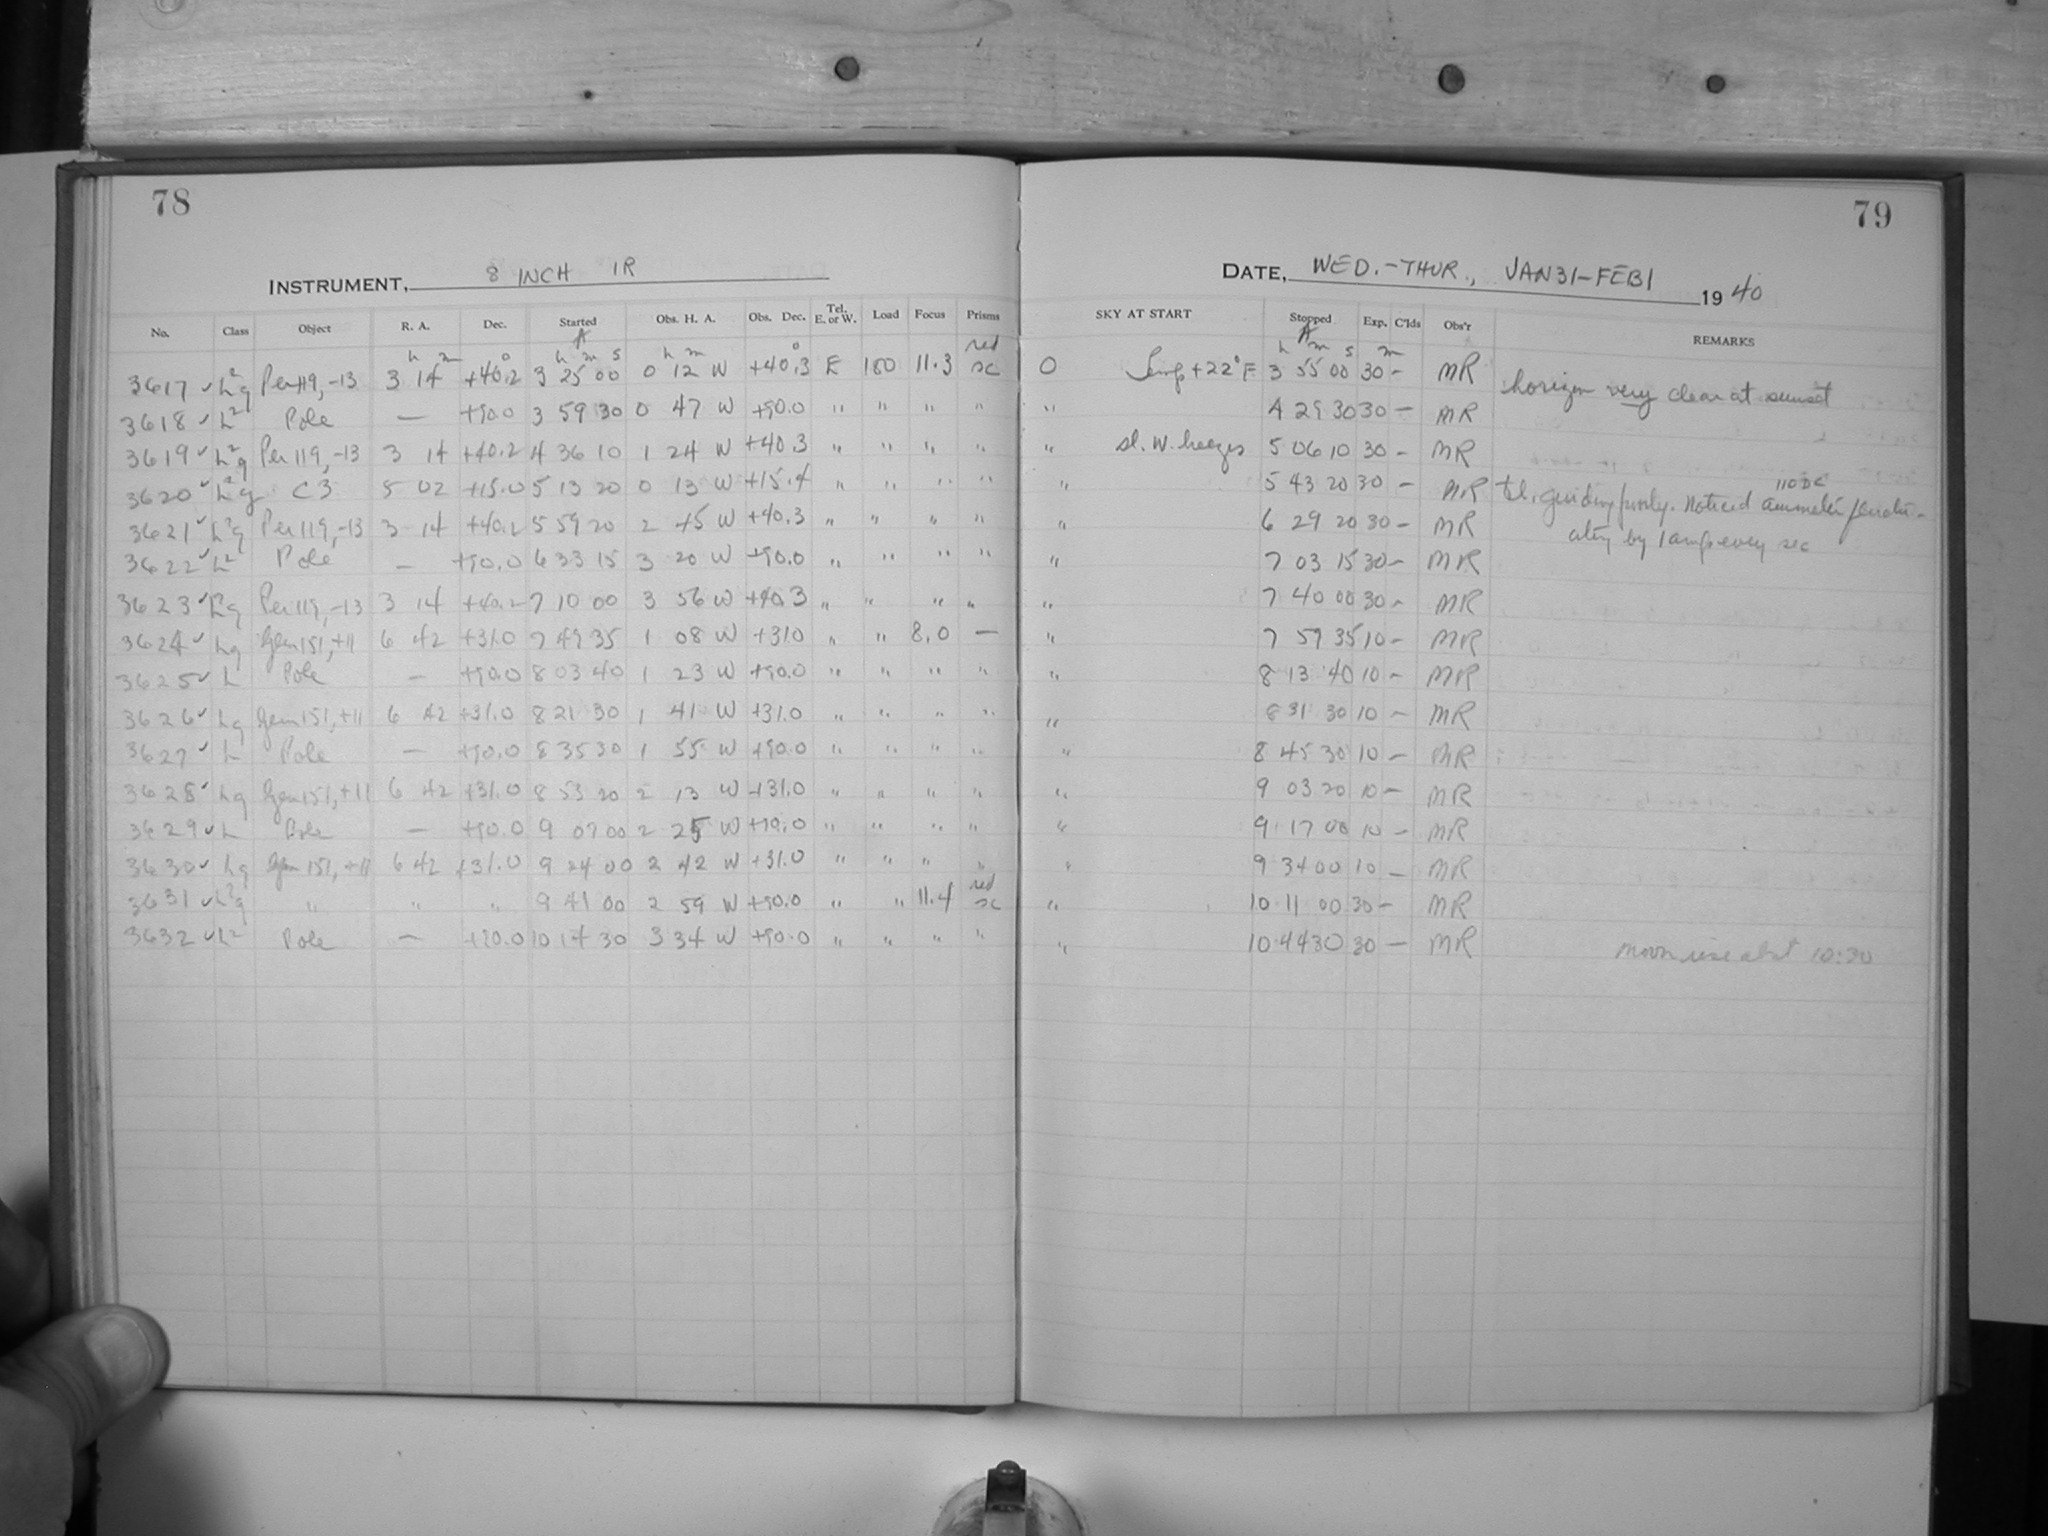 78
79
INSTRUMENT, 8 INCH IR
DATE, WED.-THUR., JAN31-FEB1 1940
No. Class Object R. A. Dec. Started Obs. H. A. Obs. Dec. Tel. E. or W. Load Focus Prisms SKY AT START Stopped Exp. C'lds Obs'r REMARKS
h m o h m s h m o h m s m
3617 ✓ L²g Per 119, -13 3 14 +40.2 3 25 00 0 12 W +40.3 E 180 11.3 red sc 0 Temp +22°F 3 55 00 30 - MR horizon very clear at sunset
3618 ✓ L² Pole — +90.0 3 59 30 0 47 W +90.0 " " " " " 4 29 30 30 - MR
3619 ✓ L²g Per 119, -13 3 14 +40.2 4 36 10 1 24 W +40.3 " " " " " sl. W. breezes 5 06 10 30 - MR
3620 ✓ L²g C3 5 02 +15.0 5 13 20 0 13 W +15.4 " " " " " 5 43 20 30 - MR tel. guiding poorly. Noticed 110 DC ammeter
3621 ✓ L²g Per 119, -13 3 14 +40.2 5 59 20 2 45 W +40.3 " " " " " 6 29 20 30 - MR by 1 amp every sec
3622 ✓ L² Pole — +90.0 6 33 15 3 20 W +90.0 " " " " " 7 03 15 30 - MR
3623 ✓ L²g Per 119, -13 3 14 +40.2 7 10 00 3 56 W +40.3 " " " " " 7 40 00 30 - MR
3624 ✓ Lg Gem 151, +11 6 42 +31.0 7 49 35 1 08 W +31.0 " " 8.0 — " 7 59 35 10 - MR
3625 ✓ L Pole — +90.0 8 03 40 1 23 W +90.0 " " " " " 8 13 40 10 - MR
3626 ✓ Lg Gem 151, +11 6 42 +31.0 8 21 30 1 41 W +31.0 " " " " " 8 31 30 10 - MR
3627 ✓ L Pole — +90.0 8 35 30 1 55 W +90.0 " " " " " 8 45 30 10 - MR
3628 ✓ Lg Gem 151, +11 6 42 +31.0 8 53 20 2 13 W +31.0 " " " " " 9 03 20 10 - MR
3629 ✓ L Pole — +90.0 9 07 00 2 25 W +90.0 " " " " " 9 17 00 10 - MR
3630 ✓ Lg Gem 151, +11 6 42 +31.0 9 24 00 2 42 W +31.0 " " " " " 9 34 00 10 - MR
3631 ✓ L²g " " " 9 41 00 2 59 W +90.0 " " 11.4 red sc " 10 11 00 30 - MR
3632 ✓ L² Pole — +90.0 10 14 30 3 34 W +90.0 " " " " " 10 44 30 30 - MR moon rise abt 10:30